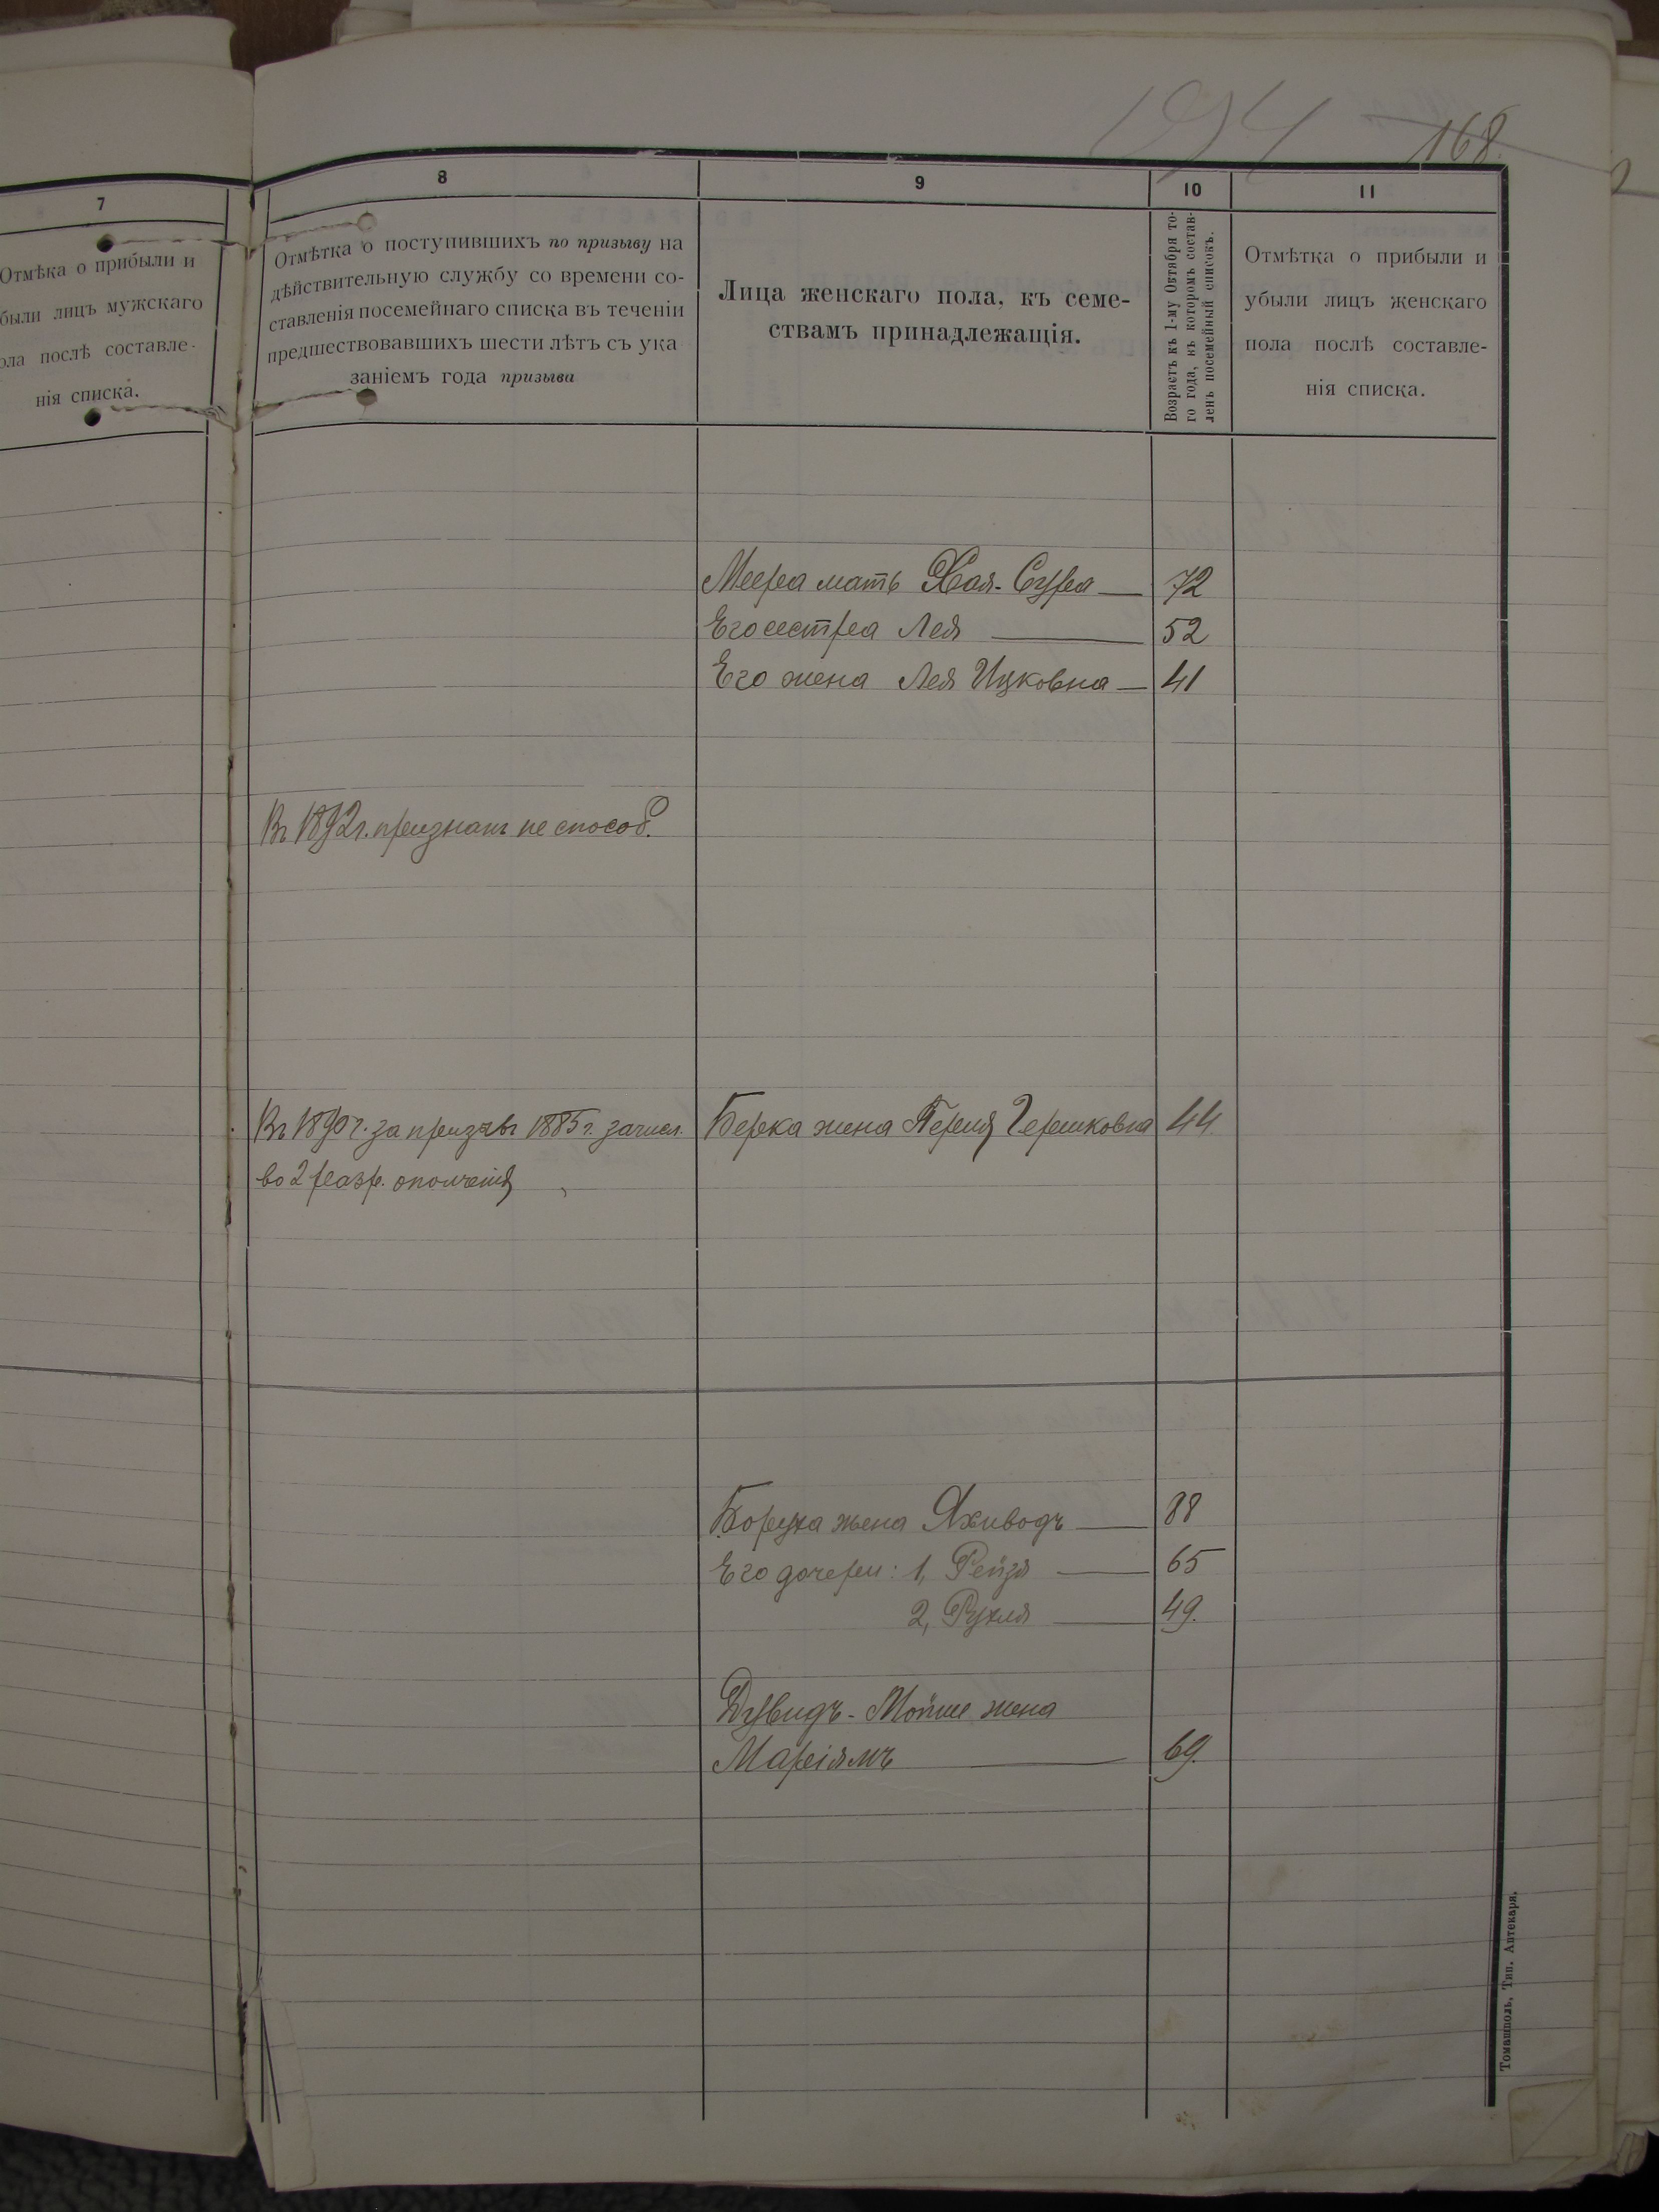 194
168
7
Отмѣка о прибыли и
были лицъ мужскаго
ола послѣ составле-
нія списка.
8
Отмѣтка о поступившихъ по призыву на
дѣйствительную службу со времени со-
ставленія посемейнаго списка въ теченіи
предшествовавшихъ шести лѣтъ съ ука
заніемъ года призыва
9
Лица женскаго пола, къ семе-
ствамъ принадлежащія.
10
Возрастъ къ 1-му Октября то-
го года, въ которомъ состав-
ленъ посемейный списокъ.
11
Отмѣтка о прибыли и
убыли лицъ женскаго
пола послѣ составле-
нія списка.
Меера мать Хая-Сура — 72
Его сестра Лея — 52
Его жена Лея Ицковна — 41
Въ 1892 г. признанъ не способ.
Въ 1890 г. за призывъ 1885 г. зачисл.
во 2 разр. ополченія
Берка жена Перля Гершковна 44
Боруха жена Яхиводъ — 88
Его дочери: 1, Рейзя — 65
2, Рухля — 49.
Дувидъ-Мойше жена
Маріямъ — 69.
Томашполь, Тип. Аптекаря.